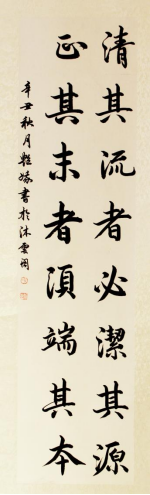 清其流者必潔其源
正其末者須端其本
辛丑秋月
書於沐雲閣